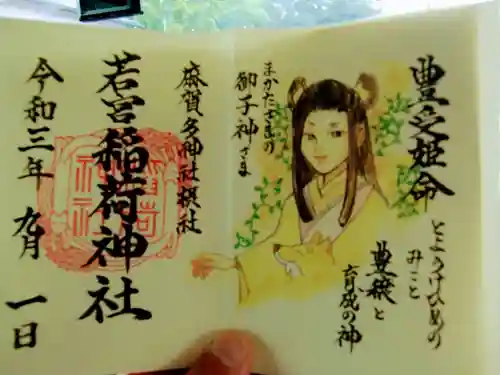 豊受姫命
とようけひめの
みこと
豊穣と
育成の神
まかたさまの
御子神さま
麻賀多神社摂社
若宮稲荷神社
令和三年
九月
一日